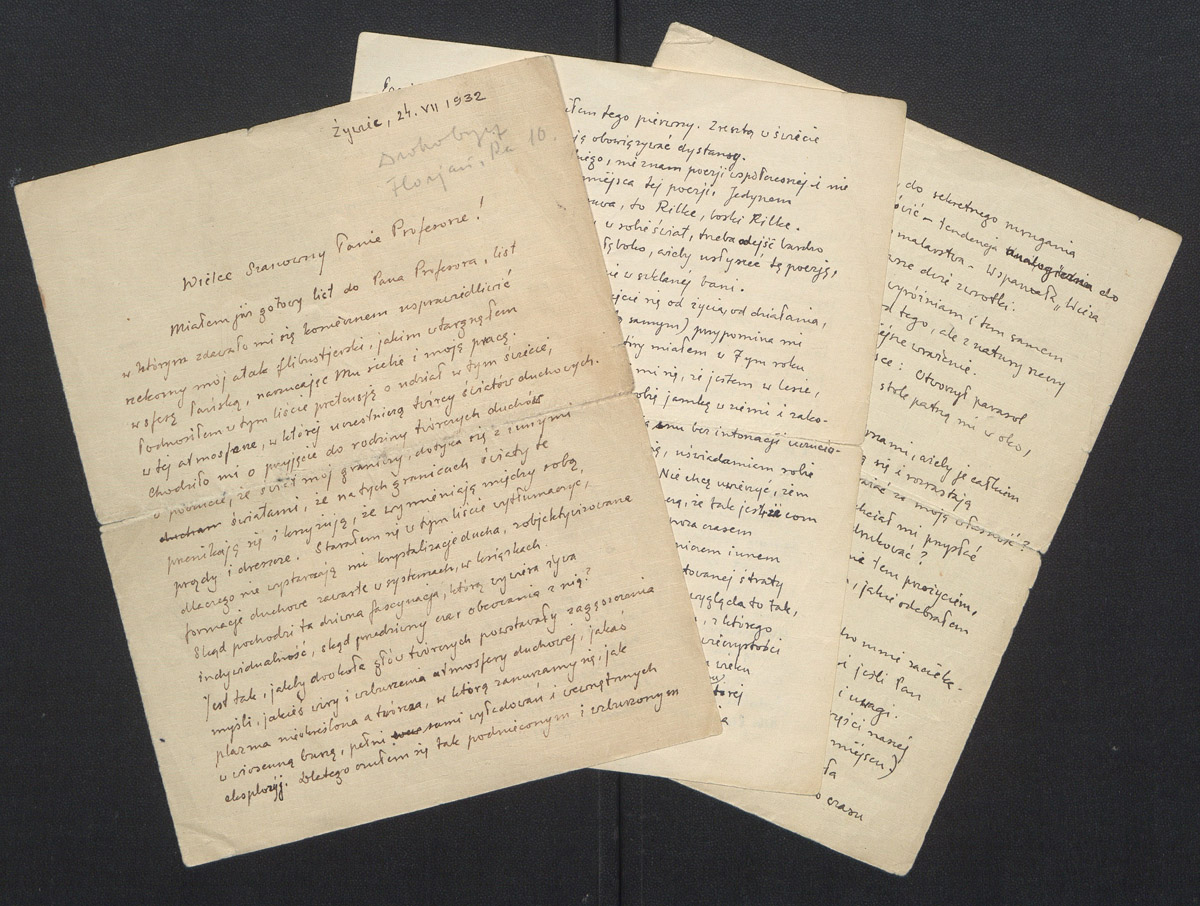 Żywiec, 24. VII 1932
Drohobycz
Florjańska 10.
Wielce Szanowny Panie Profesorze!
Miałem już gotowy list do Pana Profesora, list
w którym zdawało mi się koniecznem usprawiedliwić
niekorny mój atak flibustjerski, jakim wtargnąłem
w sferę Pańską, narzucając Mu siebie i moją pracę.
Podnosiłem w tym liście pretensję o udział w tym świecie,
w tej atmosferze, w której uczestniczą twórcy światów duchowych.
Chodziło mi o przyjęcie do rodziny twórczych duchów
o poczucie, że świat mój graniczy, dotyka się z innymi
światami, że na tych granicach światy te
przenikają się i krzyżują, że wymieniają między sobą
prądy i dreszcze. Starałem się w tym liście wytłumaczyć,
dlaczego nie wystarczają mi krystalizacje ducha, zobjektywizowane
formacje duchowe zawarte w systemach, w książkach.
Skąd pochodzi ta dziwna fascynacja, którą wywiera żywa
indywidualność, skąd przedziwny czar obcowania z nią?
Jest tak, jakby dookoła głów twórczych powstawały zagęszczenia
myśli, jakieś wiry i wzburzenia atmosfery duchowej, jakaś
plazma nieokreślona a twórcza, w którą zanurzamy się, jak
w wiosenną burzę, pełni sami wyładowań i wewnętrznych
eksplozyj. Dlatego czułem się tak podnieconym i wzburzonym
tego pierwszy. Zresztą w świecie
obowiązywać dystansy.
nie znam poezji współczesnej i nie
miejsca tej poezji. Jedynem
to Rilke, boski Rilke.
w sobie świat, trzeba odejść bardzo
głęboko, ażeby usłyszeć tę poezję,
w szklanej bani.
się od życia, od działania,
samym) przypomina mi
miałem w 7ym roku
mi się, że jestem w lesie,
jamkę w ziemi i zako-
bez intonacji uczucio-
uświadamiam sobie
Nie chcę uwierzyć, żem
że tak jest, że com
poza czasem
innem
straty
wygląda to tak,
z którego
wieczystości
wieku
której
do sekretnego mrugania
tendencja do
malarstwa - Wspaniała "Wieża
duże zwrotki.
wyróżniam i tem samem
tego, ale z natury rzeczy
wrażenie.
Otworzył parasol
stole patrzą mi w oko,
ażeby je całkiem
się i rozrastają
za moją własność?
chciał mi przysłać
tem przeżyciem,
jakie odebrałem
mnie zacieka-
jeśli Pan
i uwagi.
naszej
miejscu)
czasu